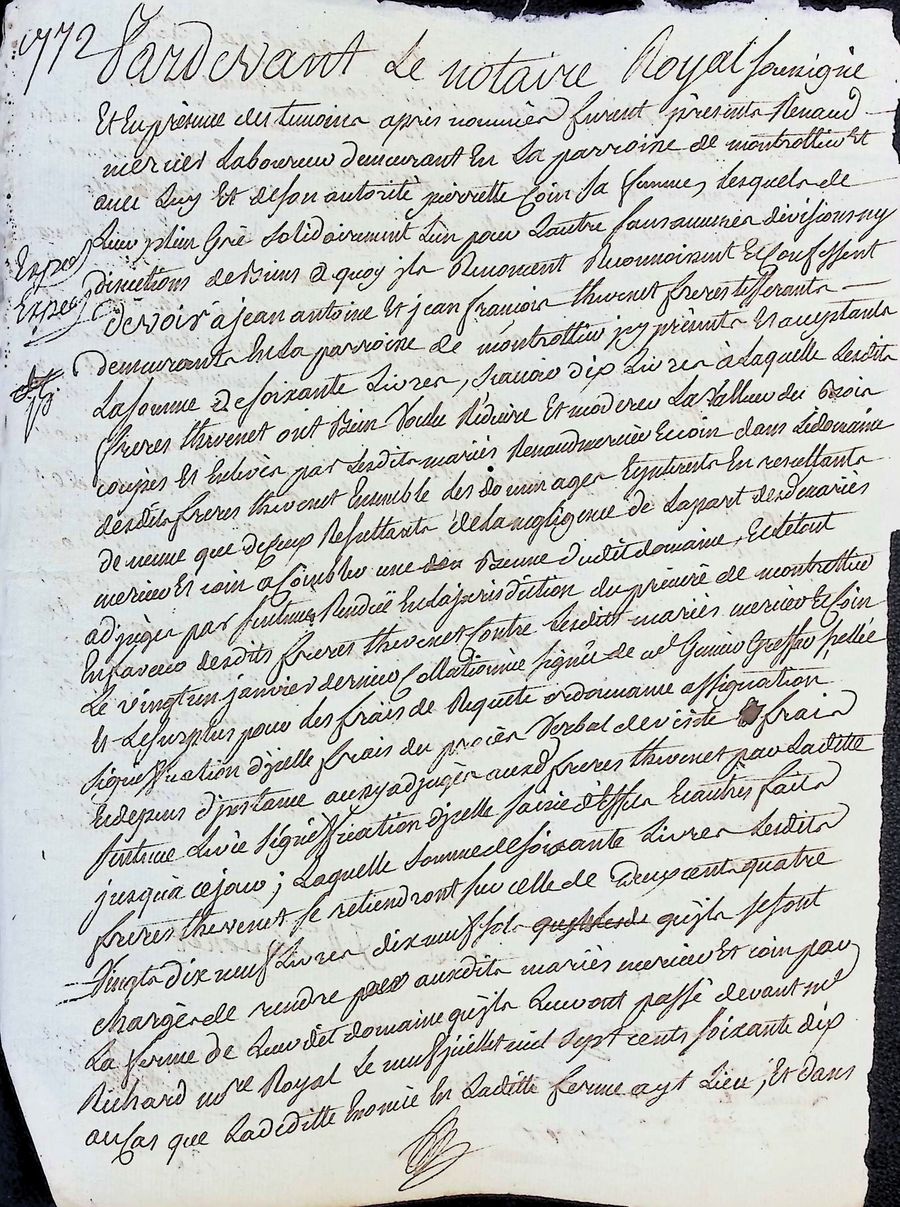 1772 Pardevant Le notaire Royal soussigné
Et En présence des temoins après nommés furent présents Renaud
mercier Laboureur demeurant En La parroisse de montrottier Et
avec Luy Et de son autorité pierrette Coin sa femme, Lesquels de
Leur plein Gré solidairement L'un pour L'autre sans aucunes divisions ny
Exped
discutions de Biens a quoy ils Renoncent Reconnoissent Et Confessent
Exped
devoir à jean antoine Et jean francois thevenet freres tisserants
demeurants En La parroisse de montrottier icy présents Et acceptants
La somme de soixante Livres, scavoir dix Livres à Laquelle Lesdits
freres thevenet ont Bien Voulu Réduire Et moderer La Valleur des Bois
coupés Et Enlevés par Lesdits mariés Renaud mercier Et coin dans Le domaine
desdits freres thevenet Ensemble des dommages Et intérêts En resultants
de meme que de ceux Resultants de La negligence de La part desd mariés
mercier Et coin a Combler une Benne dudit domaine, Et le tout
adjugés par sentence Rendüe En La jurisdiction du prieuré de montrottier
En faveur desdits freres thevenet Contre Lesdits mariés mercier Et Coin
Le vingt un janvier dernier Collationnée signée de Greffier scellée
Et Le surplus pour Les frais de Requete ordonnance assignation
signiffication d'icelle frais du procès Verbal de visite frais
Et depens d'instance aussy adjugés auxd freres thevenet par Laditte
sentence Levée signiffication d'icelle saisie d'Effets Et autres faits
jusqu'à ce jour; Laquelle somme de soixante Livres Lesdits
freres thevenet se retiendront sur celle de deux cent quatre
Vingts dix neuf Livres dix neuf sols qu'ils se sont
chargés de rendre auxdits mariés mercier Et coin par
La ferme de Leur dit domaine qu'ils Leur ont passé devant me
Richard nore Royal Le neuf juillet mil sept cents soixante dix
au Cas que Laditte En Laditte ferme ayt Lieu, Et dans